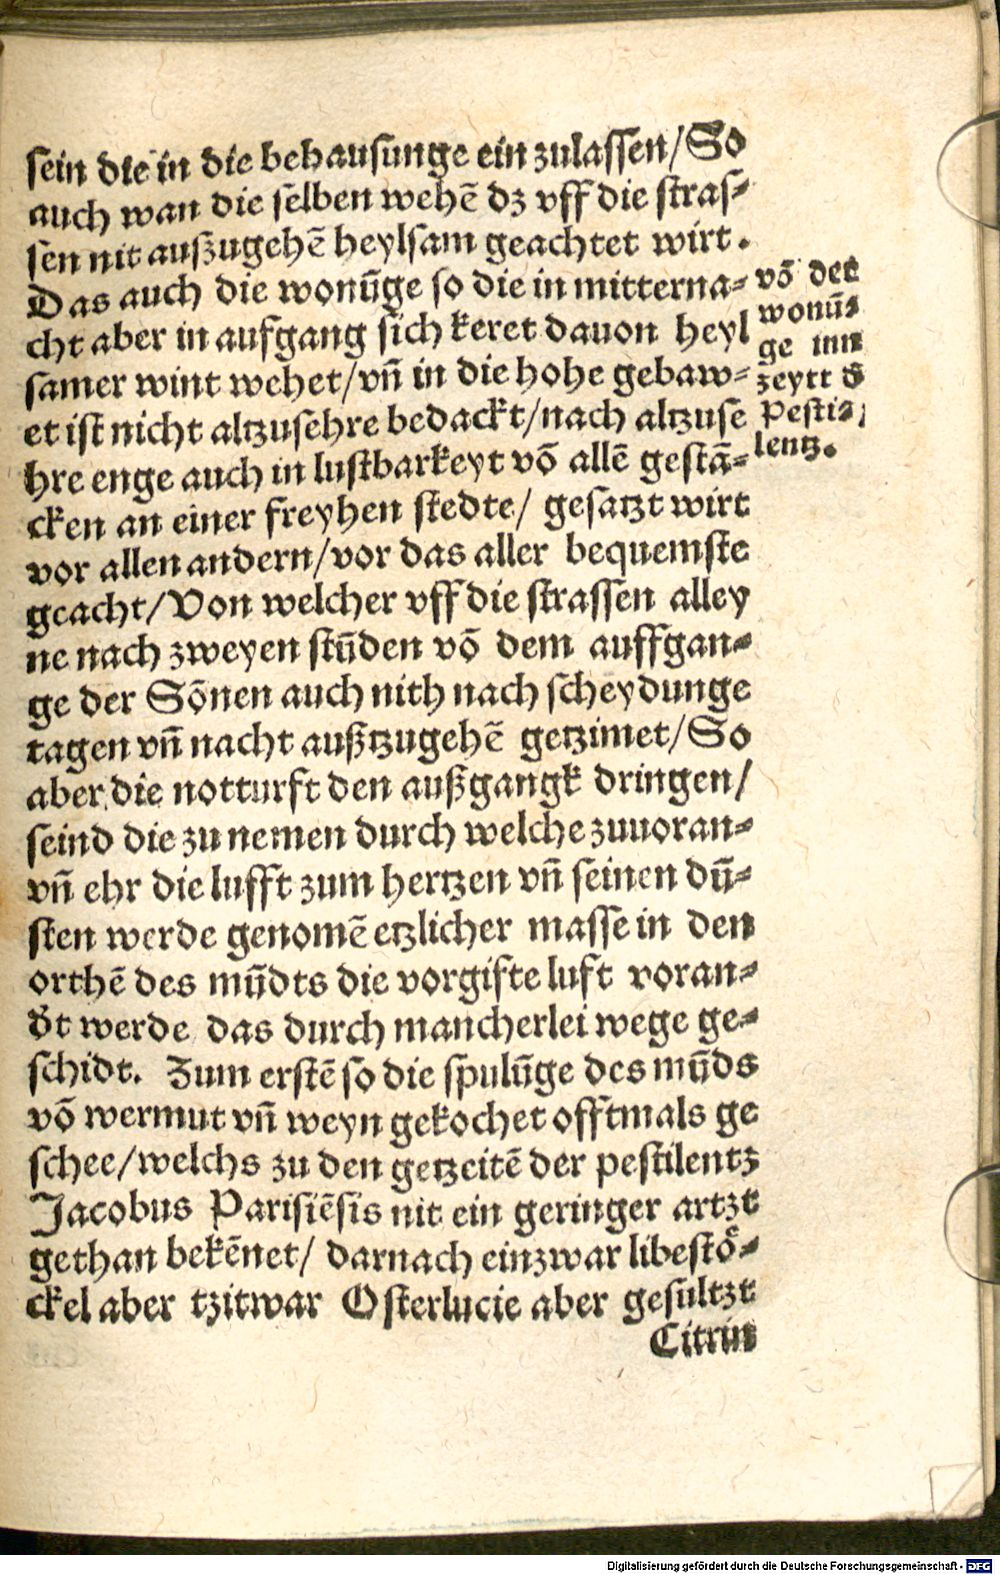 sein die in die behausunge ein zulassen/So
auch wan die selben wehẽ dz vff die stras⸗
sen nit auszugehẽ heylsam geachtet wirt.
Das auch die wonũge so die in mitterna⸗
cht aber in aufgang sich keret dauon heyl
samer wint wehet/vñ in die hohe gebaw⸗
et ist nicht altzusehre bedackt/nach altzuse
hre enge auch in lustbarkeyt võ allẽ gestã⸗
cken an einer freyhen stedte/ gesatzt wirt
vor allen andern/vor das aller bequemste
geacht/Von welcher vff die strassen alley
ne nach zweyen stũden võ dem auffgan⸗
ge der Sõnen auch nith nach scheydunge
tagen vñ nacht außtzugehẽ getzimet/So
aber die notturft den außgangk dringen/
seind die zu nemen durch welche zuuoran⸗
vñ ehr die lufft zum hertzen vñ seinen dũ⸗
sten werde genomẽ etzlicher masse in den
orthẽ des mũdts die vorgifte luft voran⸗
d't werde das durch mancherlei wege ge⸗
schidt. Zum erstẽ so die spulũge des mũds
võ wermut vñ weyn gekochet offtmals ge
schee/welchs zu den getzeitẽ der pestilentz
Jacobus Parisiẽsis nit ein geringer artzt
gethan bekẽnet/ darnach einzwar libestö⸗
ckel aber tzitwar Osterlucie aber gesultzt
Citrin
võ der
wonũ⸗
ge inn
zeytt d'
Pesti⸗
lentz.
Digitalisierung gefördert durch die Deutsche Forschungsgemeinschaft - DFG